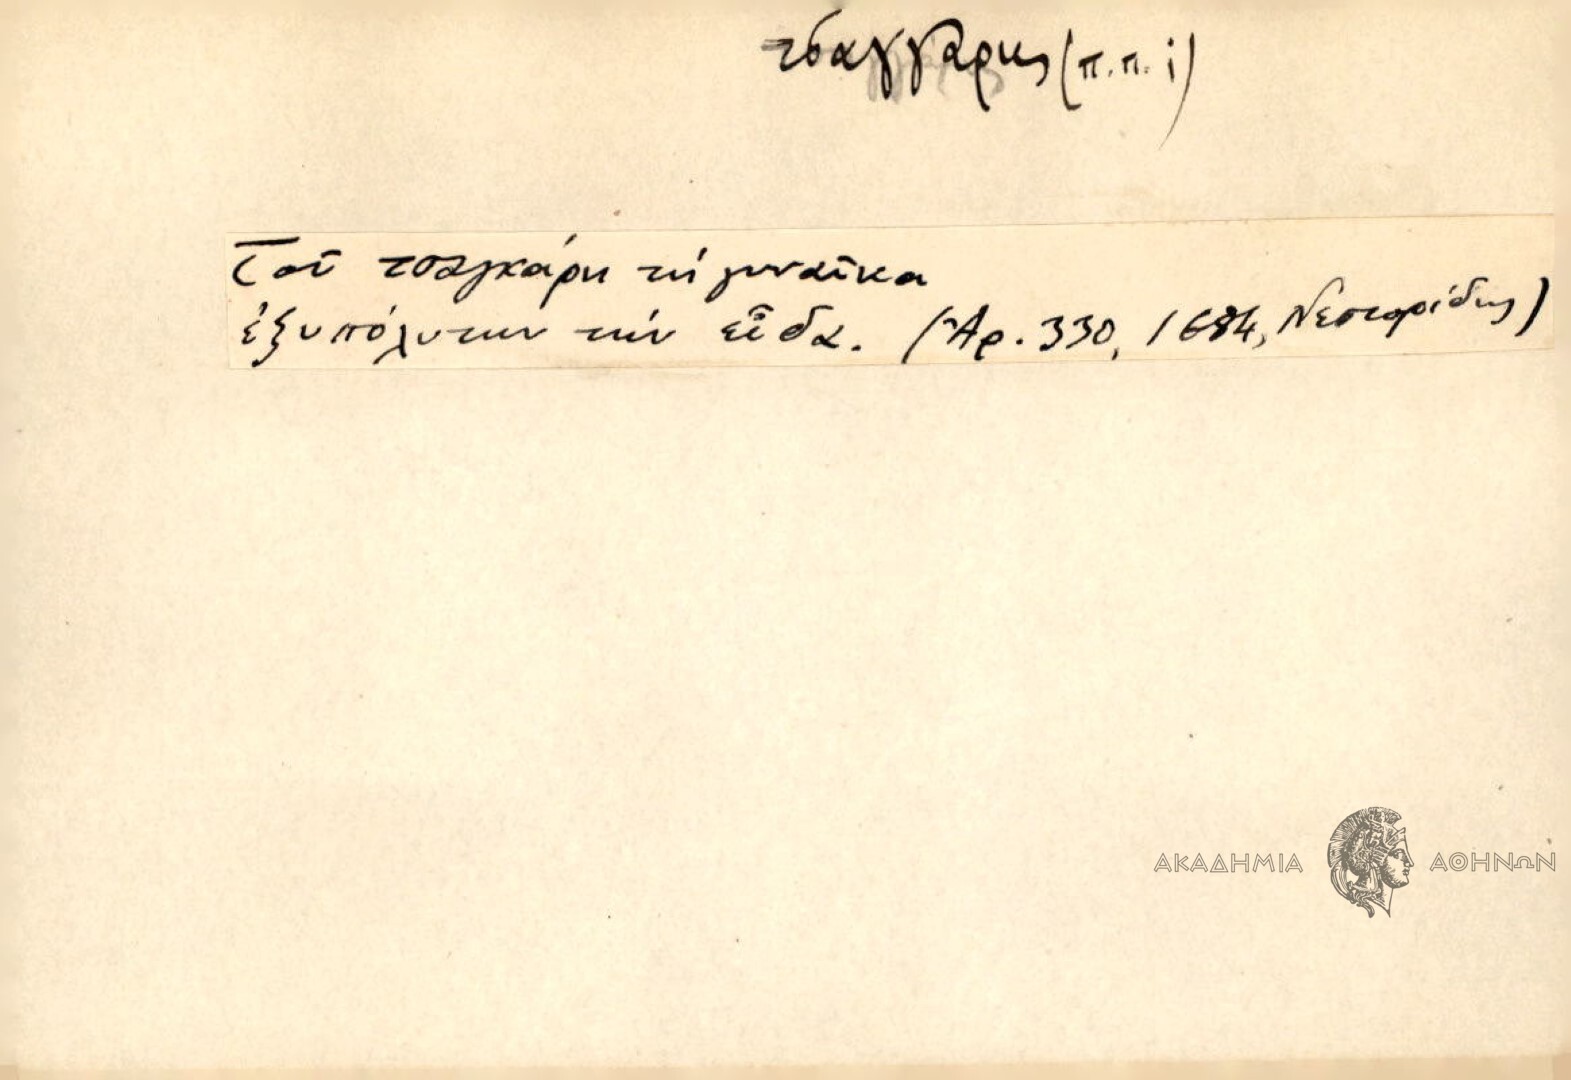 τσαγγάρης (π.π. i)
Τοῦ τσαγκάρη τή γυναῖκα
ἐξυπόλυτην τήν εἶδα. (Ἀρ. 330, 1684, Νεστορίδης)
ΑΚΑΔΗΜΙΑ ΑΘΗΝΩΝ